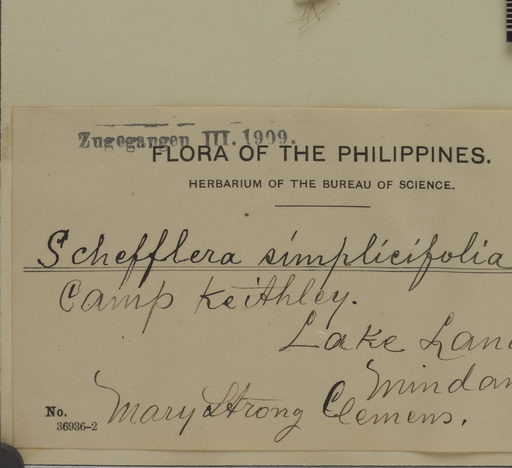 Zugegangen III. 1909.
FLORA OF THE PHILIPPINES.
HERBARIUM OF THE BUREAU OF SCIENCE.
Schefflera simplicifolia
Camp Keithley.
Lake Lan
Mindan
No. Mary Strong Clemens.
36936-2